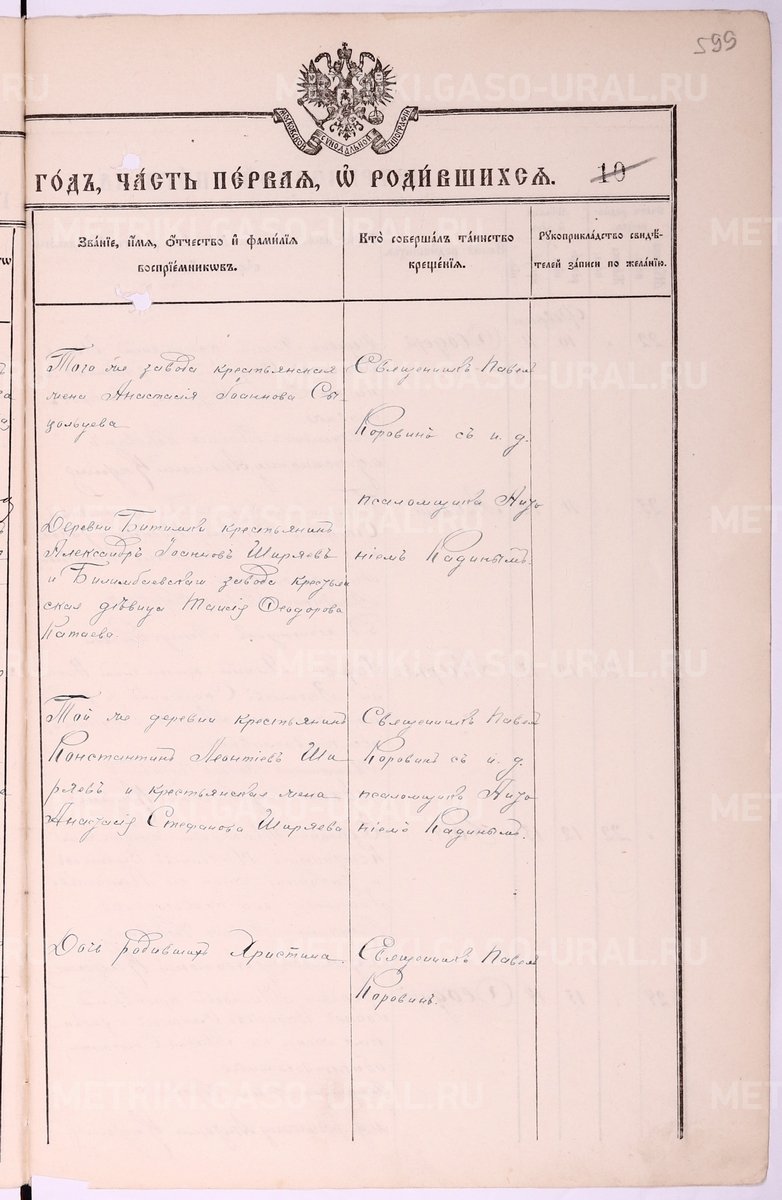 599
МОСКОВСКОЙ СѴНОДАЛЬНОЙ ТИПОГРАФІИ
ГО́ДЪ, ЧА́СТЬ ПЕ́РВАЯ, Ѡ҆ РОДИ́ВШИХСЯ.
10
Зва́нїе, и҆́мѧ, ѻ҆́тчество и҆ фами́лїѧ
воспрїе́мникѡвъ.
Кто̀ соверша́лъ та́инство
креще́нїѧ.
Рꙋкоприкла́дство свидѣ́-
телей за́писи по жела́нїю.
Того же завода крестьянская
жена Анастасія Іоаннова Сы
цольцева
Священникъ Павелъ
Коровинъ съ и. д.
псаломщика Анто
ніемъ Кадинымъ.
Деревни Битимки крестьянинъ
Александръ Іоанновъ Ширяевъ
и Билимбаевскаго завода крестьян
ская дѣвица Таисія Ѳеодорова
Катаева.
Той же деревни крестьянинъ
Константинъ Леонтіевъ Ши-
ряевъ и крестьянская жена
Анастасія Стефанова Ширяева
Священникъ Павелъ
Коровинъ съ и. д.
псаломщика Анто
ніемъ Кадинымъ.
Дочь родившихъ Христина
Священникъ Павелъ
Коровинъ.
METRIKI.GASO-URAL.RU